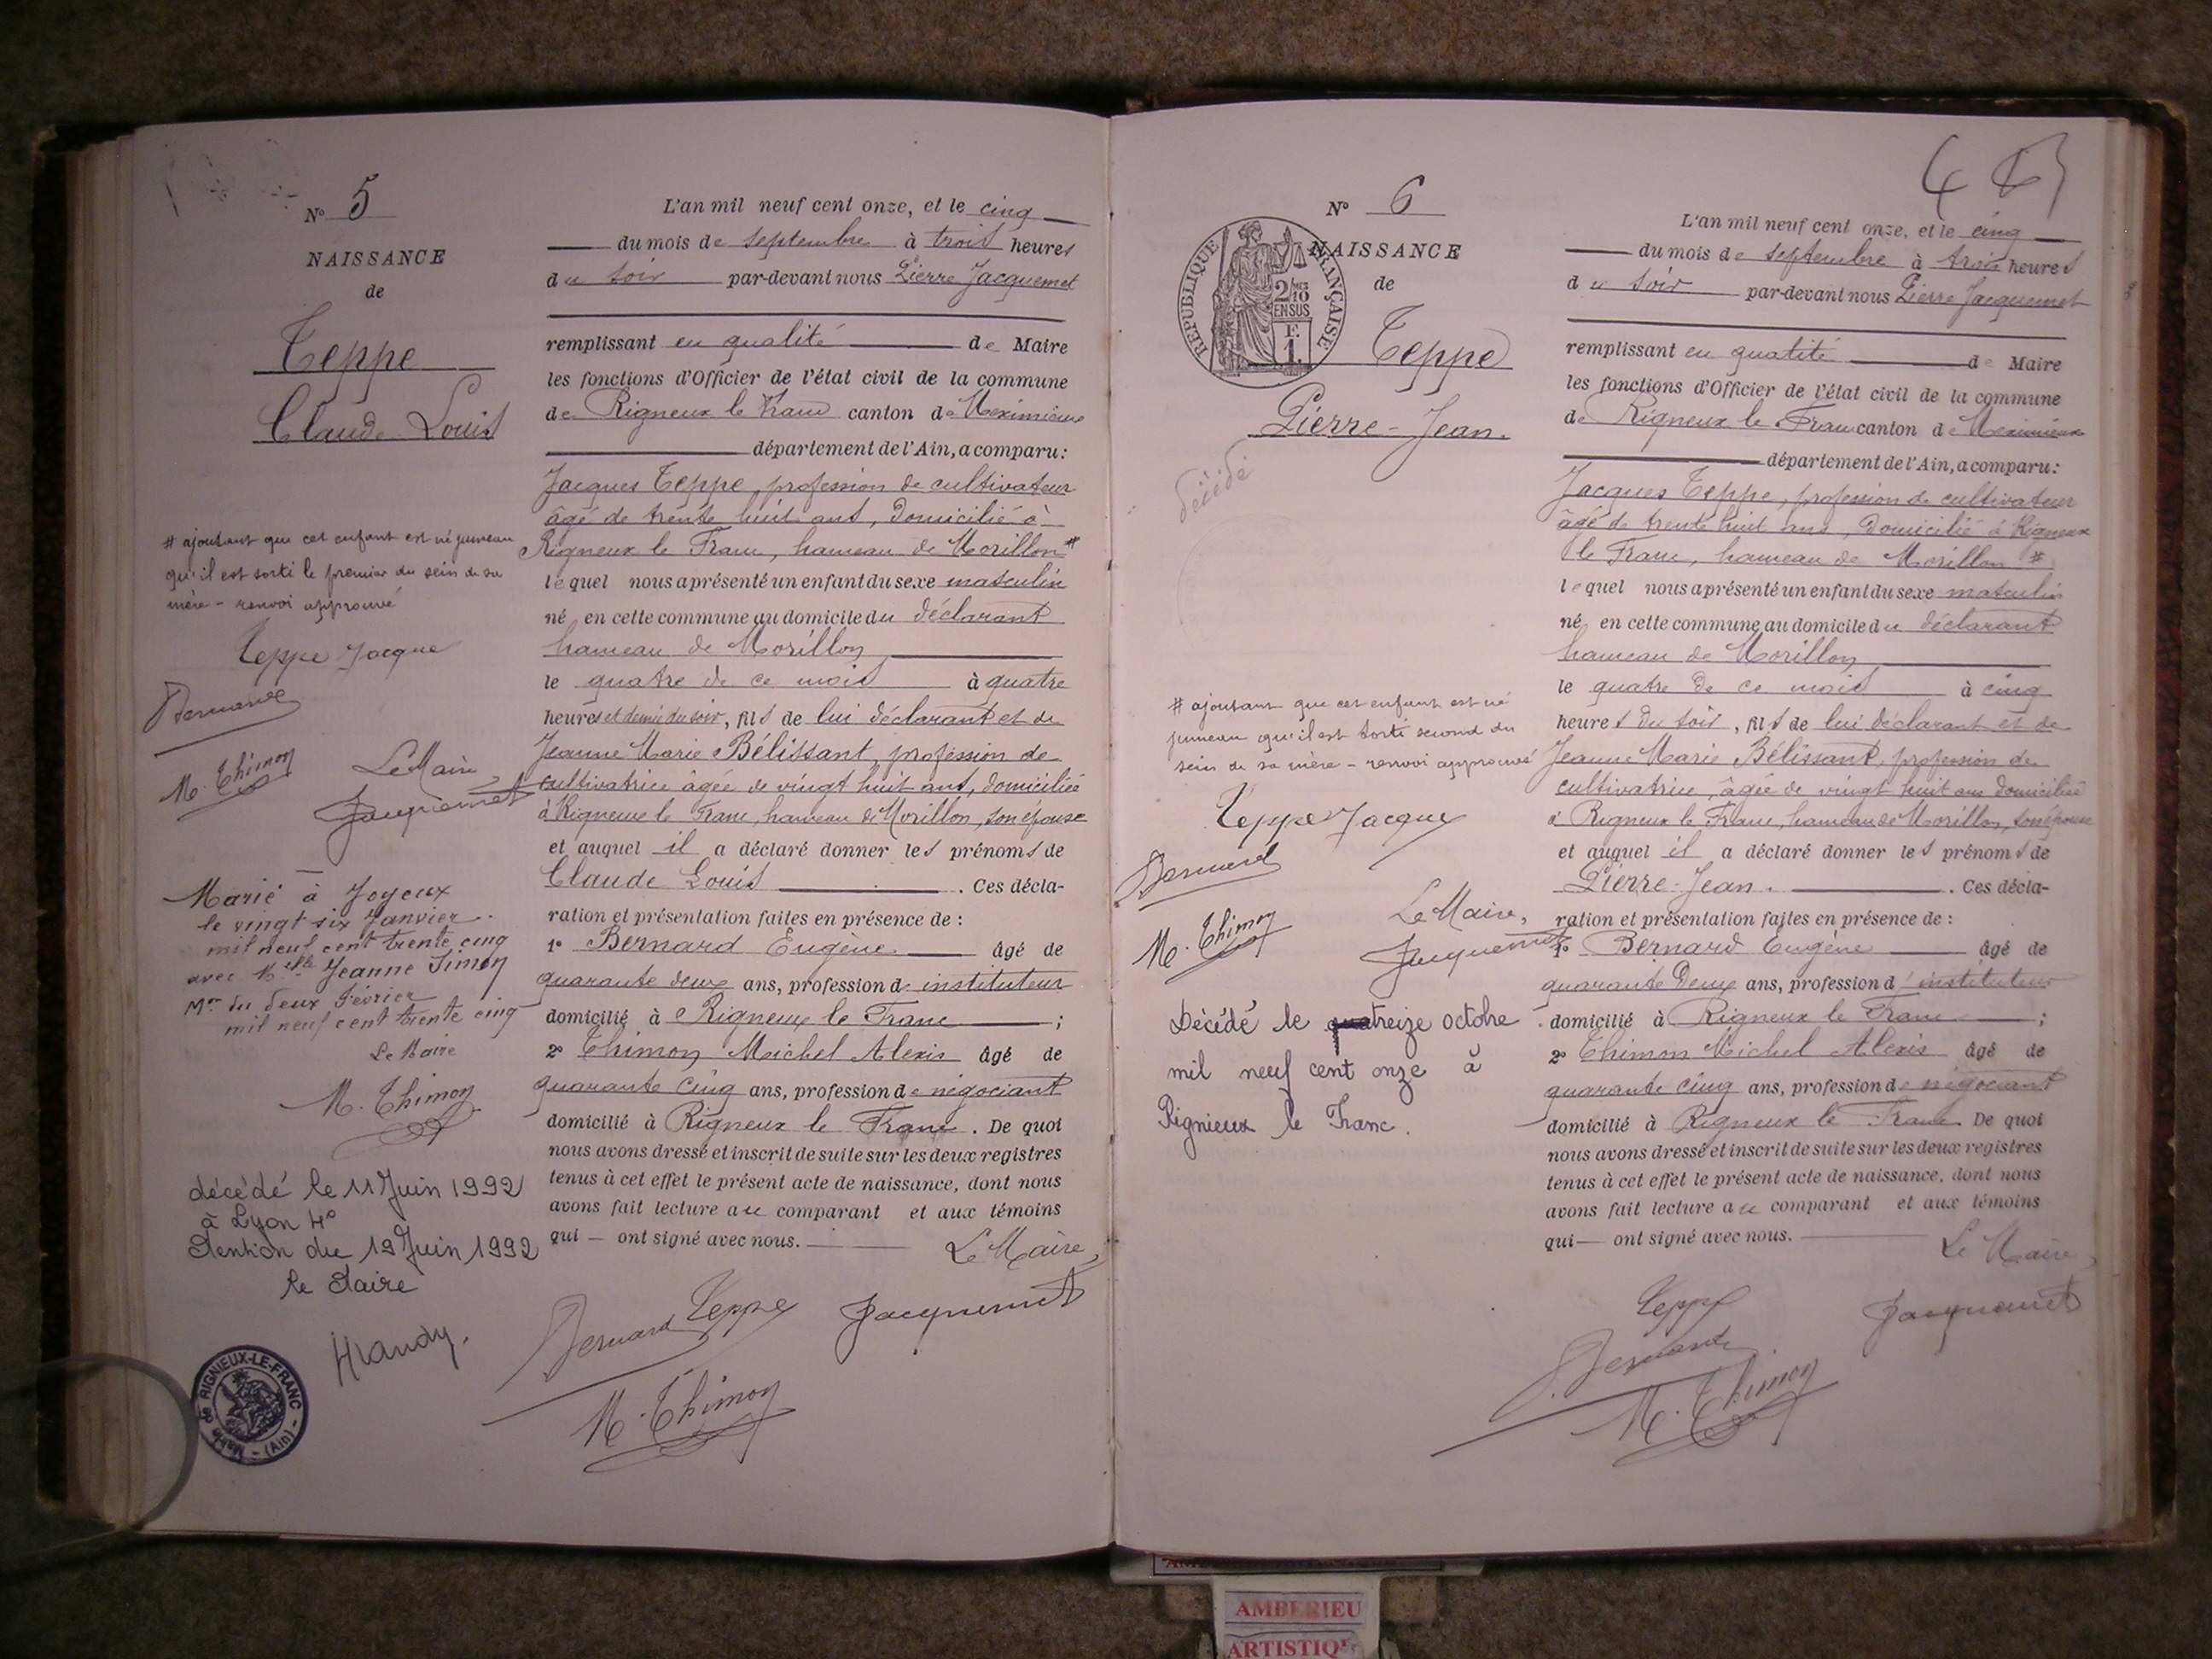 N° 5
NAISSANCE
de
Teppe
Claude Louis
# ajoutant que cet enfant est né jumeau
qu'il est sorti le premier du sein de sa
mère - renvoi approuvé
Teppe Jacque
Bernard
M. Thimon
Le Maire,
Jacquemet
Marié à Joyeux
le vingt six Janvier
mil neuf cent trente cinq
avec Melle Jeanne Simon
Mon du deux Février
mil neuf cent trente cinq
Le Maire
M. Thimon
décédé le 11 Juin 1992
à Lyon 4°
Mention du 19 Juin 1992
le Maire
Mairie de RIGNIEUX-LE-FRANC - (Ain) -
L'an mil neuf cent onze, et le cinq
du mois de septembre à trois heures
du soir par-devant nous Pierre Jacquemet
remplissant en qualité de Maire
les fonctions d'Officier de l'état civil de la commune
de Rigneux le Franc canton de Meximieux
département de l'Ain, a comparu:
Jacques Teppe, profession de cultivateur
âgé de trente huit ans, domicilié à
Rigneux le Franc, hameau de Morillon #
lequel nous a présenté un enfant du sexe masculin
né en cette commune au domicile du déclarant
hameau de Morillon
le quatre de ce mois à quatre
heures et demie du soir, fils de lui déclarant et de
Jeanne Marie Bélissant, profession de
cultivatrice âgée de vingt huit ans, domiciliée
à Rigneux le Franc, hameau de Morillon, son épouse
et auquel il a déclaré donner les prénoms de
Claude Louis . Ces décla-
ration et présentation faites en présence de :
1° Bernard Eugène âgé de
quarante deux ans, profession d'instituteur
domicilié à Rigneux le Franc ;
2° Thimon Michel Alexis âgé de
quarante cinq ans, profession de négociant
domicilié à Rigneux le Franc. De quoi
nous avons dressé et inscrit de suite sur les deux registres
tenus à cet effet le présent acte de naissance, dont nous
avons fait lecture au comparant et aux témoins
qui — ont signé avec nous.
Le Maire,
Bernard Teppe Jacquemet
M. Thimon
N° 6
NAISSANCE
de
REPUBLIQUE FRANÇAISE
2/10 EN SUS
F. 1.
Teppe
Pierre-Jean.
décédé
# ajoutant que cet enfant est né
jumeau qu'il est sorti second du
sein de sa mère - renvoi approuvé
Teppe Jacque
Bernard
M. Thimon
Le Maire,
Jacquemet
Décédé le treize octobre
mil neuf cent onze à
Rignieux le Franc.
L'an mil neuf cent onze, et le cinq
du mois de septembre à trois heures
du soir par-devant nous Pierre Jacquemet
remplissant en qualité de Maire
les fonctions d'Officier de l'état civil de la commune
de Rigneux le Franc canton de Meximieux
département de l'Ain, a comparu:
Jacques Teppe, profession de cultivateur
âgé de trente huit ans, domicilié à Rigneux
le Franc, hameau de Morillon #
lequel nous a présenté un enfant du sexe masculin
né en cette commune, au domicile du déclarant
hameau de Morillon
le quatre de ce mois à cinq
heures du soir, fils de lui déclarant et de
Jeanne Marie Bélissant, profession de
cultivatrice, âgée de vingt huit ans domiciliée
à Rigneux le Franc, hameau de Morillon, son épouse
et auquel il a déclaré donner les prénoms de
Pierre-Jean. . Ces décla-
ration et présentation faites en présence de :
1° Bernard Eugène âgé de
quarante deux ans, profession d'instituteur
domicilié à Rigneux le Franc ;
2° Thimon Michel Alexis âgé de
quarante cinq ans, profession de négociant
domicilié à Rigneux le Franc De quoi
nous avons dressé et inscrit de suite sur les deux registres
tenus à cet effet le présent acte de naissance, dont nous
avons fait lecture au comparant et aux témoins
qui — ont signé avec nous.
Le Maire,
Teppe
Jacquemet
Bernard
M. Thimon
AMBERIEU
ARTISTIQUE